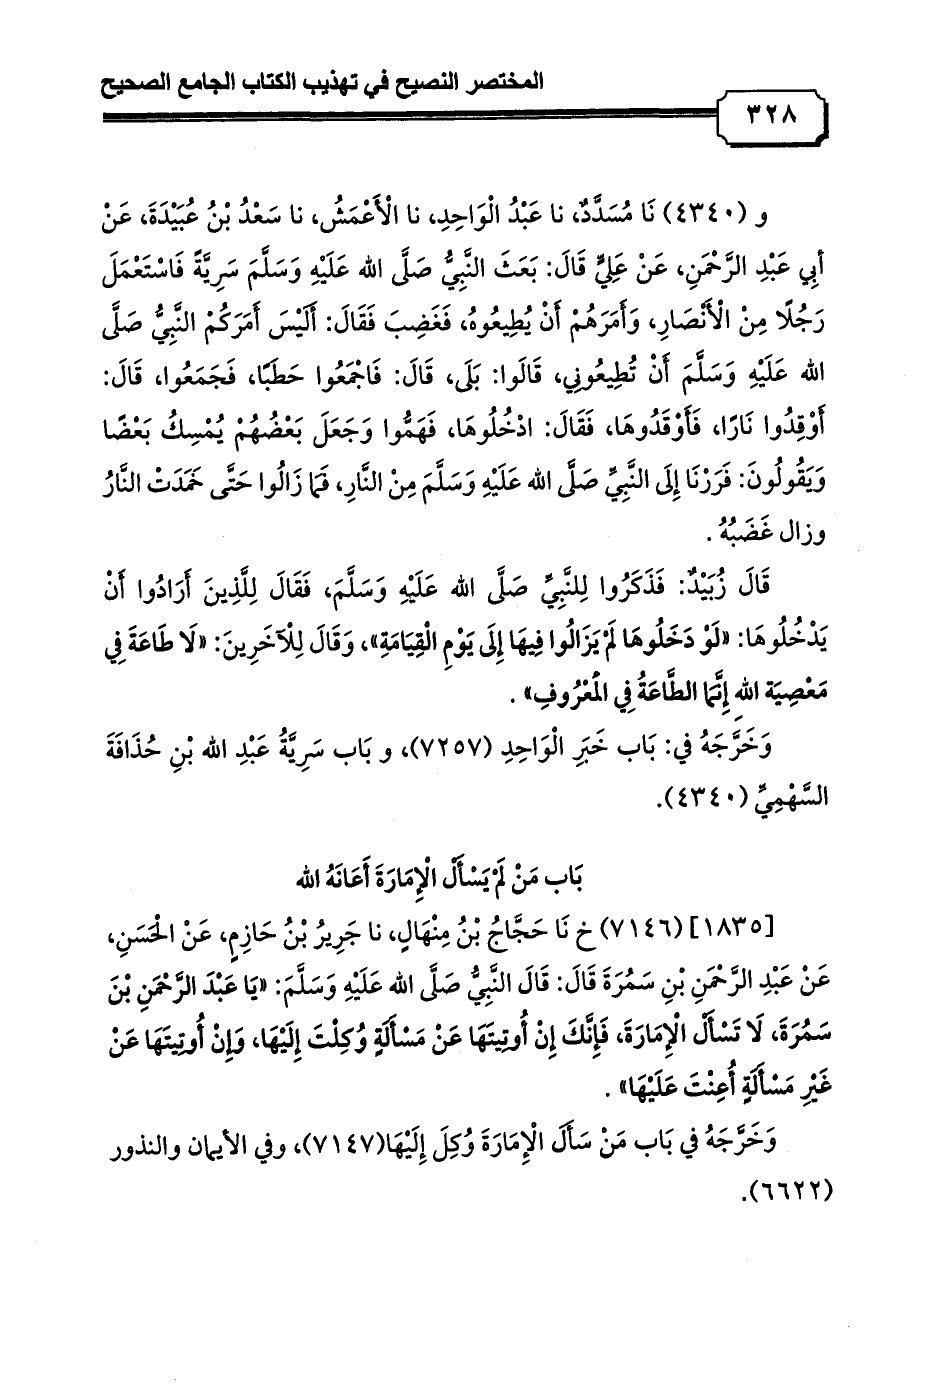 المختصر النصيح في تهذيب الكتاب الجامع الصحيح
٣٢٨
و (٤٣٤٠) نَا مُسَدَّدٌ، نا عَبْدُ الْوَاحِدِ، نا الْأَعْمَشُ، نا سَعْدُ بْنُ عُبَيْدَةَ، عَنْ
أبِي عَبْدِ الرَّحْمَنِ، عَنْ عَلِيٍّ قَالَ: بَعَثَ النَّبِيُّ صَلَّى الله عَلَيْهِ وَسَلَّمَ سَرِيَّةً فَاسْتَعْمَلَ
رَجُلًا مِنْ الْأَنْصَارِ، وَأَمَرَهُمْ أَنْ يُطِيعُوهُ، فَغَضِبَ فَقَالَ: أَلَيْسَ أَمَرَكُمْ النَّبِيُّ صَلَّى
الله عَلَيْهِ وَسَلَّمَ أَنْ تُطِيعُونِي، قَالُوا: بَلَى، قَالَ: فَاجْمَعُوا حَطَبًا، فَجَمَعُوا، قَالَ:
أَوْقِدُوا نَارًا، فَأَوْقَدُوهَا، فَقَالَ: ادْخُلُوهَا، فَهَمُّوا وَجَعَلَ بَعْضُهُمْ يُمْسِكُ بَعْضًا
وَيَقُولُونَ: فَرَرْنَا إِلَى النَّبِيِّ صَلَّى الله عَلَيْهِ وَسَلَّمَ مِنْ النَّارِ، فَمَا زَالُوا حَتَّى خَمَدَتْ النَّارُ
وزال غَضَبُهُ .
قَالَ زُبَيْدٌ: فَذَكَرُوا لِلنَّبِيِّ صَلَّى الله عَلَيْهِ وَسَلَّمَ، فَقَالَ لِلَّذِينَ أَرَادُوا أَنْ
يَدْخُلُوهَا: «لَوْ دَخَلُوهَا لَمْ يَزَالُوا فِيهَا إِلَى يَوْمِ الْقِيَامَةِ»، وَقَالَ لِلْآخَرِينَ: «لَا طَاعَةَ فِي
مَعْصِيَةِ الله إِنَّمَا الطَّاعَةُ فِي الْمَعْرُوفِ» .
وَخَرَّجَهُ فِي: بَاب خَبَرِ الْوَاحِدِ (٧٢٥٧)، و بَاب سَرِيَّةُ عَبْدِ الله بْنِ حُذَافَةَ
السَّهْمِيِّ (٤٣٤٠).
بَاب مَنْ لَمْ يَسْأَلْ الْإِمَارَةَ أَعَانَهُ الله
[١٨٣٥] (٧١٤٦) خ نَا حَجَّاجُ بْنُ مِنْهَالٍ، نا جَرِيرُ بْنُ حَازِمٍ، عَنْ الْحَسَنِ،
عَنْ عَبْدِ الرَّحْمَنِ بْنِ سَمُرَةَ قَالَ: قَالَ النَّبِيُّ صَلَّى الله عَلَيْهِ وَسَلَّمَ: «يَا عَبْدَ الرَّحْمَنِ بْنَ
سَمُرَةَ، لَا تَسْأَلْ الْإِمَارَةَ، فَإِنَّكَ إِنْ أُوتِيتَهَا عَنْ مَسْأَلَةٍ وُكِلْتَ إِلَيْهَا، وَإِنْ أُوتِيتَهَا عَنْ
غَيْرِ مَسْأَلَةٍ أُعِنْتَ عَلَيْهَا» .
وَخَرَّجَهُ فِي بَاب مَنْ سَأَلَ الْإِمَارَةَ وُكِلَ إِلَيْهَا(٧١٤٧)، وفي الأيمان والنذور
(٦٦٢٢).